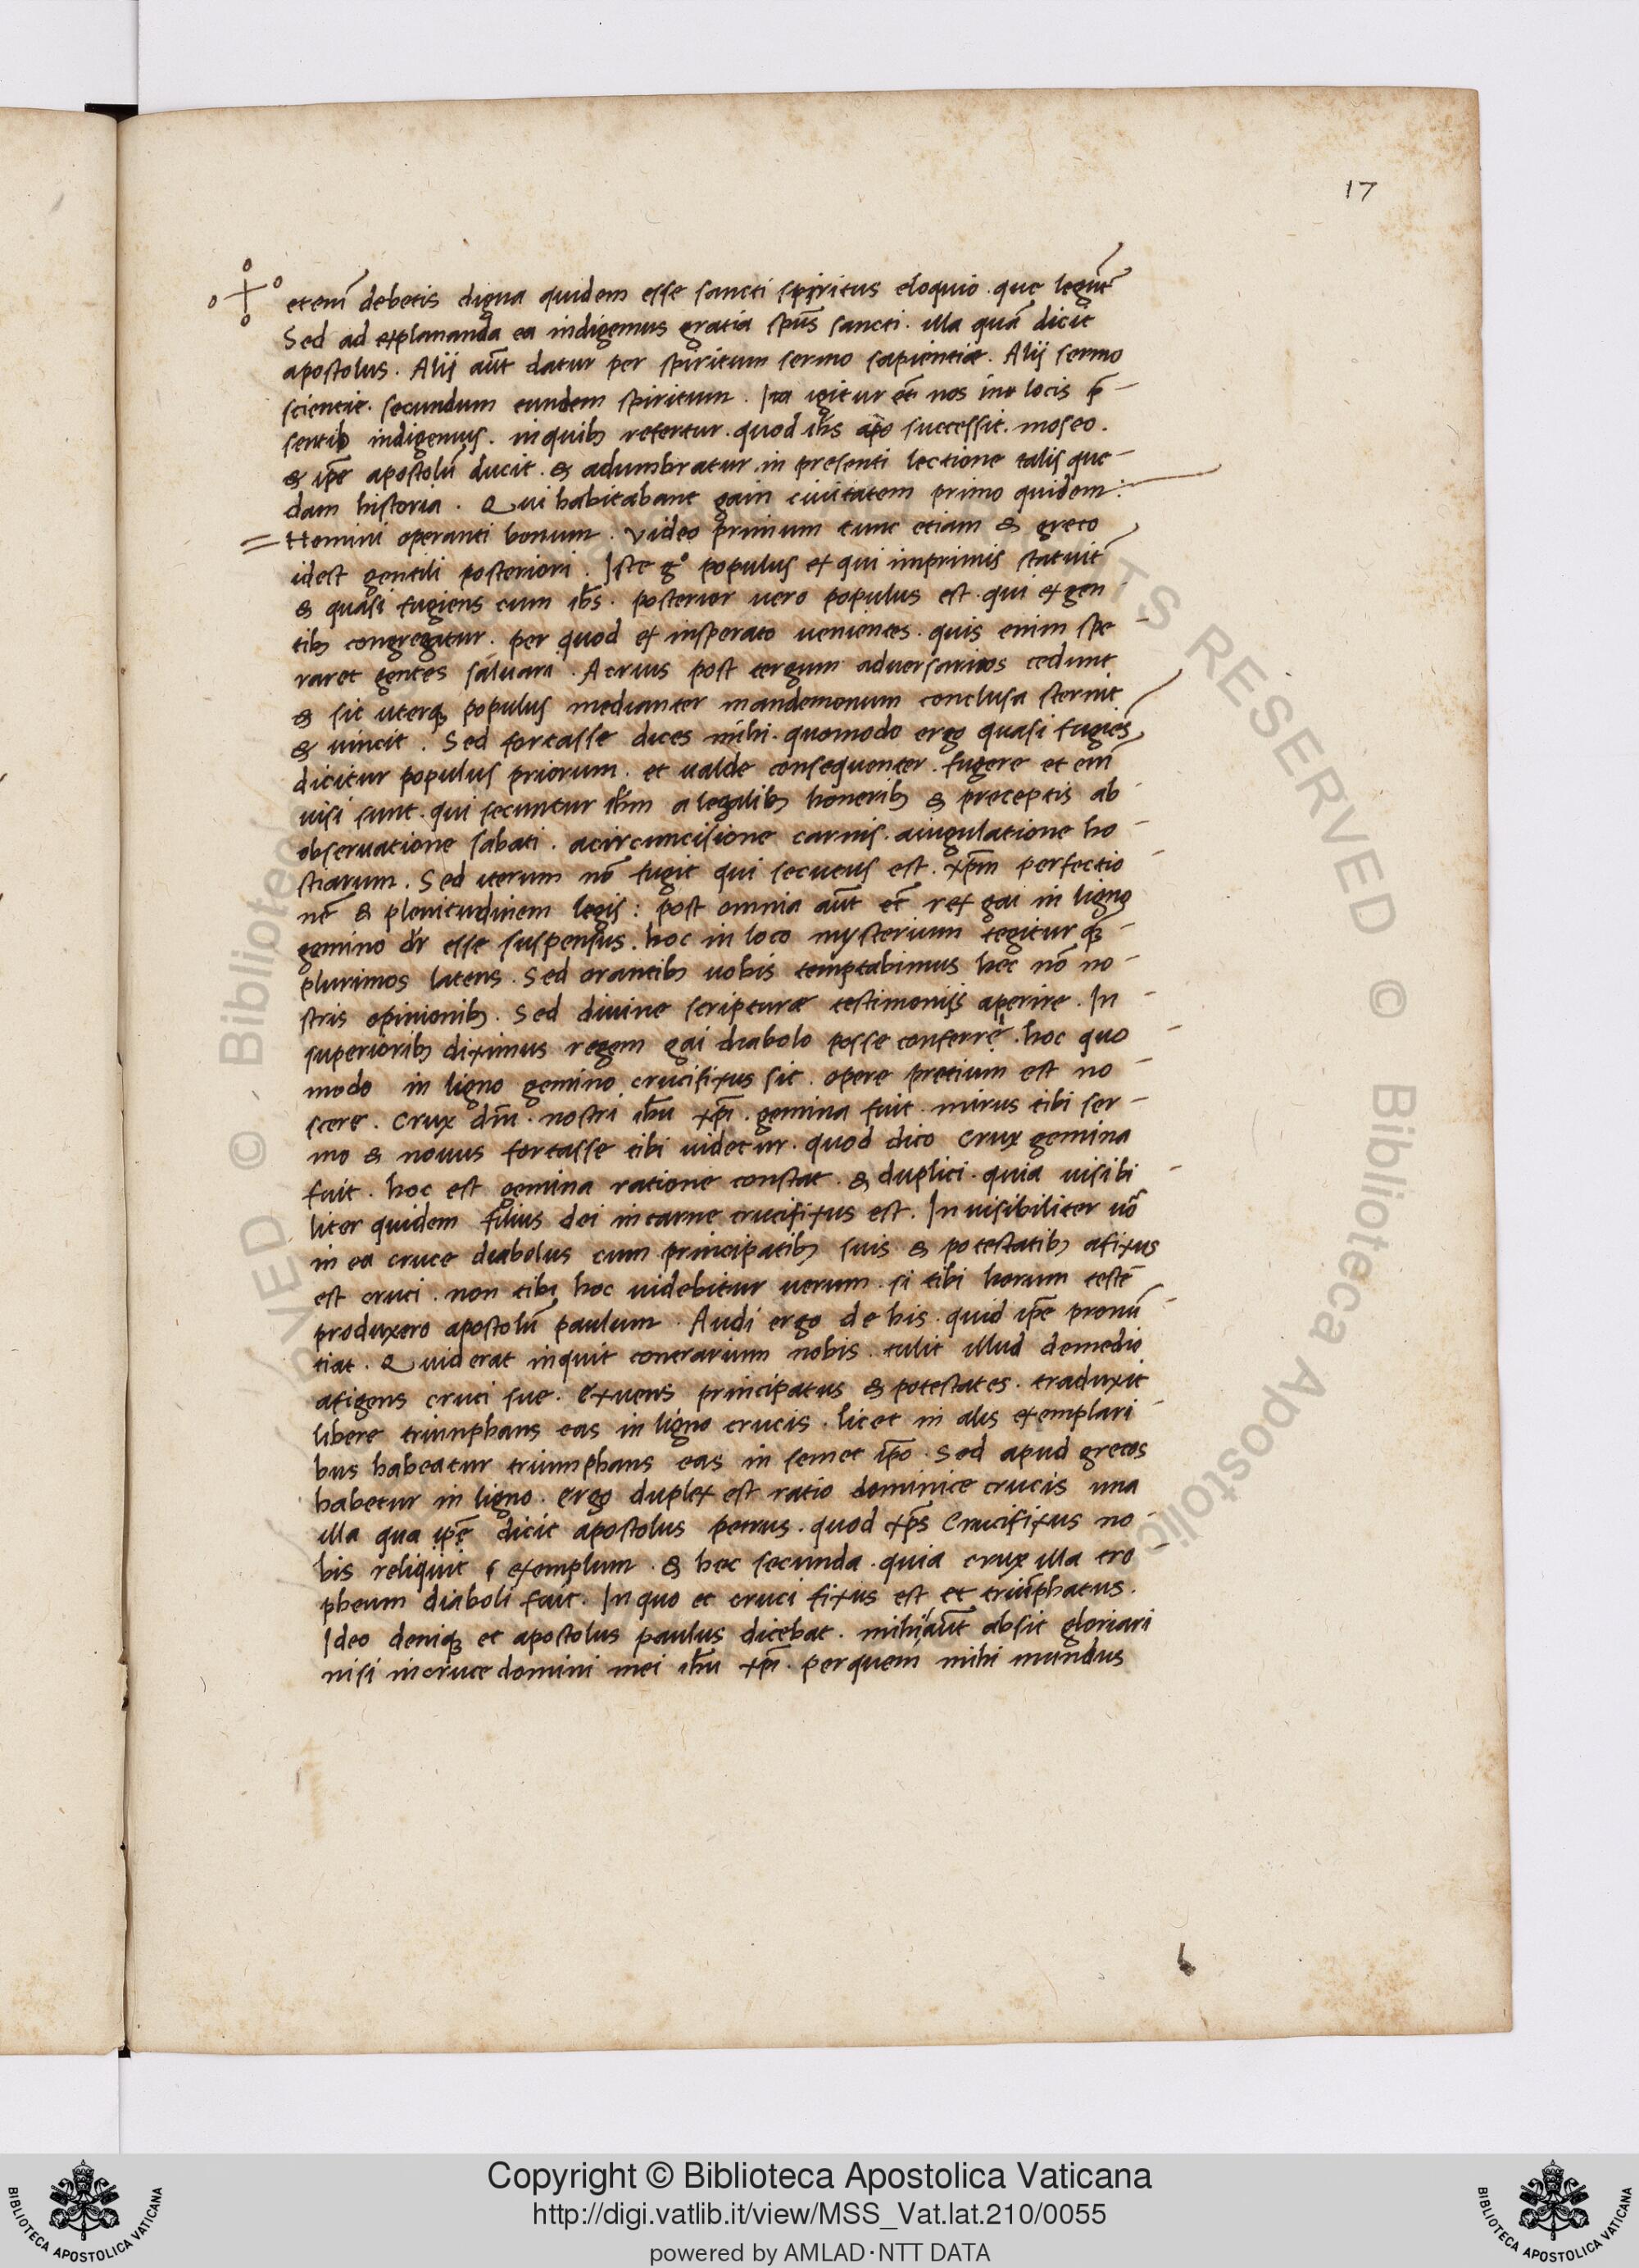 17
etenĩ debetis digna quidem esse sancti spiritus eloquio. que legũt̃
Sed ad explananda ea indigemus gratia spũs sancti. illa quã dicit
apostolus. Alij aũt datur per spiritum sermo sapientiae. Alij sermo
scientie. secundum eundem spiritum. Ita igitur et̃ nos in locis p̃-
sentib indigemus. in quib refertur. quod ihs successit. moseo.
& ip̃e apostolũ ducit. & adumbratur. in presenti lectione talis que-
dam historia. Qui habitabant gain ciuitatem primo quidem:
Homini operanti bonum. video primum tunc etiam & greco
idest gentili posteriori. Iste gº populus ex qui imprimis statuit̃
& quasi fugiens cum ihs. posterior uero populus est. qui ex gen
tib congregatur. per quod ex insperato uenientes. quis enim spe-
raret gentes saluari. Acrius post tergum aduersarios cedunt
& sic uterq populus medianter mandemonum conclusa sternit
& uincit. Sed fortasse dices mihi. quomodo ergo quasi fugiẽs
dicitur populus priorum. et ualde consequenter. fugere et enĩ
uisi sunt. qui secuntur ihm a legalib honerib & preceptis ab-
obseruatione sabati. acircuncisione carnis. aiugulatione ho-
stiarum. Sed iterum nõ fugit qui secutus est. xp̃m perfectio-
nẽ & plenitudinem legis: post omnia aũt et̃ rex gai in ligno
gemino dr̃ esse suspensus. hoc in loco mysterium tegitur q̃-
plurimos latens. Sed orantib uobis temptabimus hec nõ no-
stris opinionib. Sed diuine scripturae testimonijs aperire. In-
superiorib diximus regem gai diabolo posse conferre. hoc quo-
modo in ligno gemino crucifixus sit. opere pretium est no-
scere. Crux dñi. nostri ihũ xp̃i. gemina fuit. mirus tibi ser-
mo & nouus fortasse tibi uidetur. quod dico crux gemina
fuit. hoc est gemina ratione constat. & duplici. quia uisibi-
liter quidem filius dei in carne crucifixus est. Inuisibiliter uõ
in ea cruce diabolus cum principatib suis & potestatib afixus
est cruci. non tibi hoc uidebitur uerum. si tibi horum testẽ
produxero apostolũ paulum. Audi ergo de his. quid ip̃e pronũ-
tiat. Quiderat inquit contrarium nobis. tulit illud demedio
afigens cruci sue. exuens principatus & potestates. traduxit
libere triumphans eas in ligno crucis. licet in alis exemplari-
bus habeatur triumphans eas in semet ip̃o. Sed apud grecos
habetur in ligno. ergo duplex est ratio dominice crucis una
illa qua ip̃e dicit apostolus petrus. quod xp̃s Crucifixus no-
bis reliquit exemplum. & hec secunda. quia crux illa tro-
pheum diaboli fuit. In quo et cruci fixus est et triũphatus.
Ideo deniq et apostolus paulus dicebat. mihi aũt absit gloriari
nisi incruce domini mei ihũ xp̃i. perquem mihi mundus
Copyright © Biblioteca Apostolica Vaticana
http://digi.vatlib.it/view/MSS_Vat.lat.210/0055
powered by AMLAD·NTT DATA
BIBLIOTECA APOSTOLICA VATICANA
BIBLIOTECA APOSTOLICA VATICANA